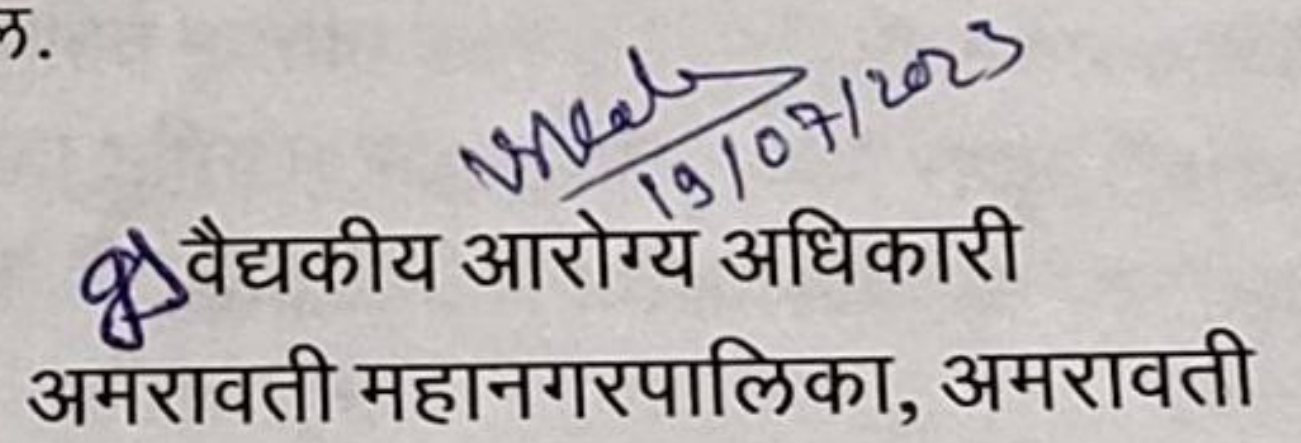 19/07/2023
वैद्यकीय आरोग्य अधिकारी
अमरावती महानगरपालिका, अमरावती